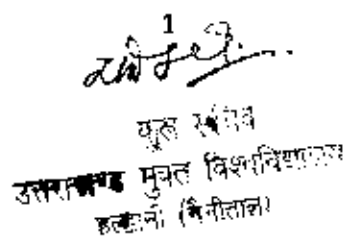 1
कुल सचिव
उत्तराखण्ड मुक्त विश्वविद्यालय
हल्द्वानी (नैनीताल)